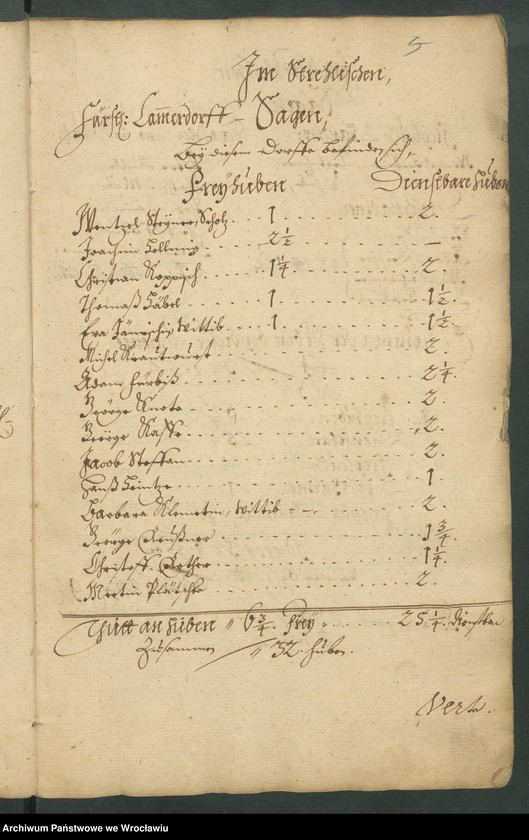 5
Im Strehlischen,
Fürstl: Cam̄erdorff – Sägen,
Bey diesem Dorffe befinden sich,
Freyhuben Dienstbare Huben
Wentzel Steyner, Scholz 1 2.
Joachim Hellmig 2 1/2 —
Christian Koppisch 1 1/4 2.
Thomaß Häbel 1 1 1/2.
Eva Jänischin, wittib 1. 1 1/2
Michel Krautwurst 2
Adam Fürbiß 2 1/4.
George Kuntz 2.
George Kasse 2.
Jacob Steffan 2.
Hanß Heintze 1.
Barbara Klemetin, wittib 2.
George 1 3/4.
Christoff 1 1/4.
Mertin Plätschke 2.
Thutt an Huben " 6 3/4. Frey " 25 1/4. dienstbar
Zusammen " 32. Huben.
Verte.
Archiwum Państwowe we Wrocławiu